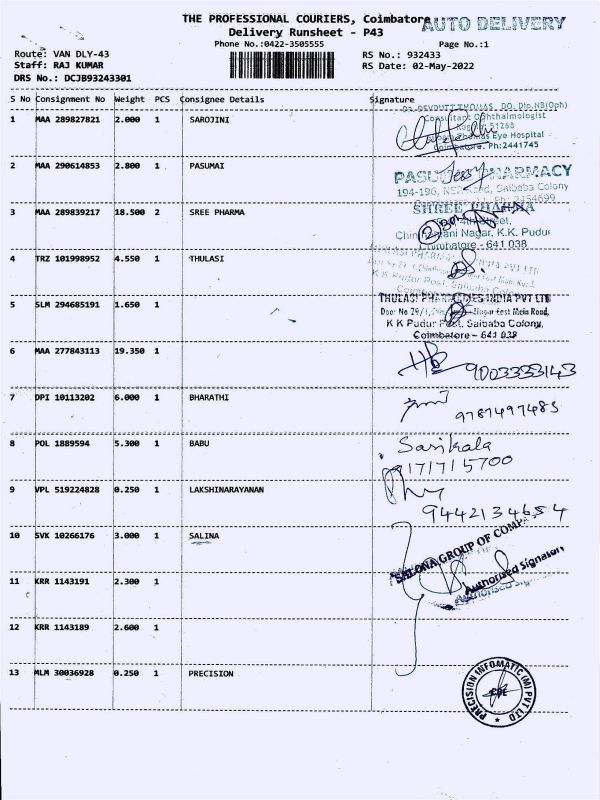 THE PROFESSIONAL COURIERS, Coimbatore
AUTO DELIVERY
Delivery Runsheet - P43
Phone No.:0422-3505555
Page No.:1
Route: VAN DLY-43
RS No.: 932433
Staff: RAJ KUMAR
RS Date: 02-May-2022
DRS No.: DCJB93243301
S No Consignment No Weight PCS Consignee Details Signature
1 MAA 289827821 2.000 1 SAROJINI
DR. DEVDUTT THOMAS, DO, Dip.NB(Oph)
Consultant Ophthalmologist
51268
Eye Hospital
Coimbatore. Ph:2441745
2 MAA 290614853 2.800 1 PASUMAI
PHARMACY
194-196, Saibaba Colony
3 MAA 289839217 18.500 2 SREE PHARMA
SHREE PHARMA
Nagar, K.K. Pudur
Coimbatore - 641 038
4 TRZ 101998952 4.550 1 THULASI
5 SLM 294685191 1.650 1
THULASI PHARMACIES INDIA PVT LTD
Door No 29/1, East Main Road,
K K Pudur Post, Saibaba Colony,
Coimbatore - 641 038
6 MAA 277843113 19.350 1
9003333143
7 DPI 10113202 6.000 1 BHARATHI
9787497485
8 POL 1889594 5.300 1 BABU
Sasikala
9171715700
9 VPL 519224828 0.250 1 LAKSHINARAYANAN
9442134654
10 SVK 10266176 3.000 1 SALINA
SALONA GROUP OF COMPA
Authorised Signatory
11 KRR 1143191 2.300 1
12 KRR 1143189 2.600 1
13 MLM 30036928 0.250 1 PRECISION
PRECISION INFOMATIC (M) PVT LTD
CBE